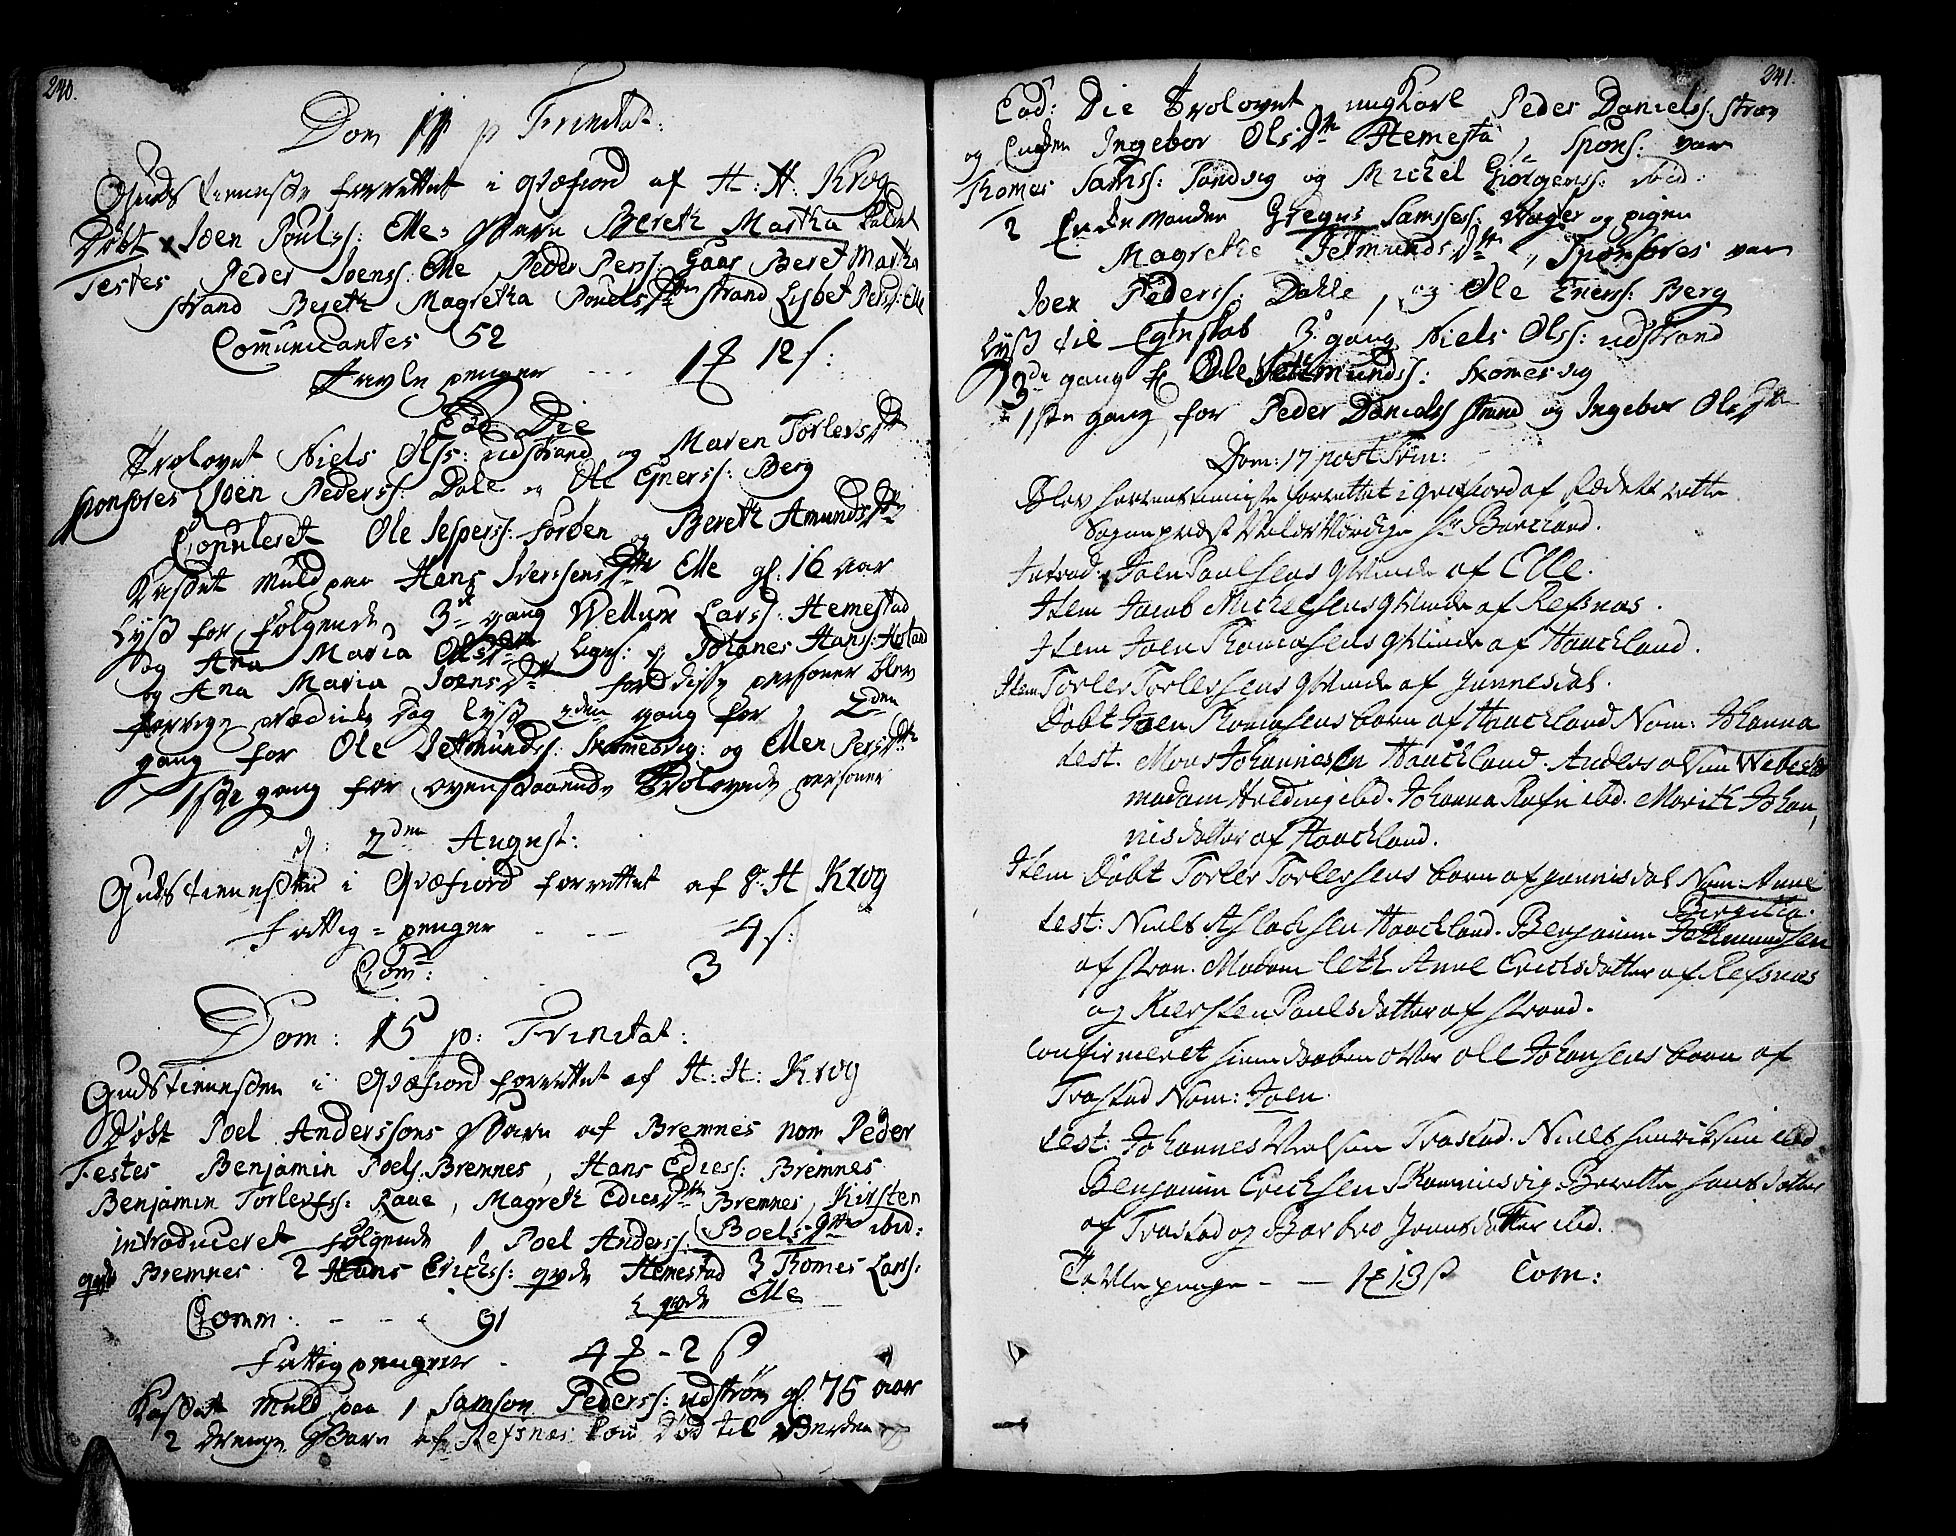 240.
Dom 11 p Trinitat:
Guds tienneste forrettet i Qvæfiord af H: H: Krog
Døbt Joen Poulss: Elles Barn Bereth Martha kaldet
Testes Peder Joenss: Elle Peder Perss: Gaar Beret Martha
strand Bereth Magretha Pouels Dtter strand Lisbet Persd: Elle
Comunicantes 52
Tavle penger - - - 1 12 s:
Eod Die
Trolovet Niels Olss: udstrand og Maren Torlers Dtr
Sponsores Joen Pederss: Dale og Ole Enerss: Berg
Copuleret Ole Jesperss: forøen og Bereth Amunds Dtr
Kastet Muld paa Hans Iverssens Dtter Elle gl: 16 aar
Lyst for følgende, 3de gang Wellum Larss: Hemestad
og Ana Maria Ols Dtr Johanes Hanss: Hostad
og Ana Maria Joens Dtr for disse personer blev
forrige prædicke Dag lyst 2den gang for, 2den
gang for Ole Jetmundss: Skomesvig: og Ellen Pers Dtr
1ste gang for ovenstaaende Trolovede personer
d: 2den August:
Gudstienesten i Qvæfiord forrettet af H: H Krog
Fattig = penger - - - 4 s:
Com: 3
Dom: 15 p: Trinitat:
Gudstienesten i Qvæfiord forrettet af H: H: Krog
Døbt Poel Anderssons Barn af Bremnes nom Peder
Testes Benjamin Poels. Bremnes, Hans Edress: Bremnes
Benjamin Torlerss: Raae, Magreth Edres Dtr Bremnes, Kirsten
Boels Dtter ibid:
introduceret følgende 1 Poel Anderss:
qvde Bremnes 2 Hans Erickss: qvde Hemestad 3 Thomes Larss:
qvde Elle
Comm: - - - 91
Fattig penger - 4 - 2 s
Kastet Muld paa 1 Samson Pederss: udstrøm gl: 75 aar
2 drenge Barn af Refsnæs Død til Verden
241.
Eod: Die Trolovet ungkarl Peder Danielss. stran
og Enken Ingebor Ols Dtr Hemesta, Spons: var
Thomes Samss: Sandvig og Michel Giørgenss: ibid:
2 Enke Manden Gregus Samsses: Vager og pigen
Magrethe Jetmunds Dtr, Sponsores var
Joen Pederss: Dahle, og Ole Enerss: Berg
Lyst til Egteskab 3: gang Niels Olss: udstrand
3de gang f Ole Jetmundss: Skomesvig
1ste gang for Peder Danielss strand og Ingebor Ols Dtr
Dom: 17 post Trin:
Blev forrettet i Qvæfiord af stædets rette
Sogne præst Velærværdige Hr
Introd: Joen Paulsens qvinde af Elle.
Item Jacob Michelsens qvinde af Refsnæs.
Item Joen Thomasens qvinde af Haackland.
Item Torler Torlersens qvinde af gunnesdal.
Døbt Joen Thomasens barn af Haackland Nom: Johanna
test. Mons Johannesen Haackland. Anders olsen
madam Holding ibd. Johanna Rafn ibd. Marith Johan,
nisdatter af Haackland.
Item Døbt Torler Torlersens barn af gunnisdal Nom: Anne
Birgitta.
test: Niels Aslacksen Haackland. Benjamin Jetmundsen
af stran. Madam Leth Anne Ericksdatter af Refsnæs
og Kiersten Paulsdatter af strand.
Confirmeret hiemmedaaben over ole Johansens barn af
Trastad Nom: Joen.
test: Johannes Trastad. Niels Henriksen ibd.
Benjamin Ericksen Skomnisvig. Beretta datter
af Trastad og Barbro Joensdatter ibd.
Tavle penge - - 1 13 s Com: